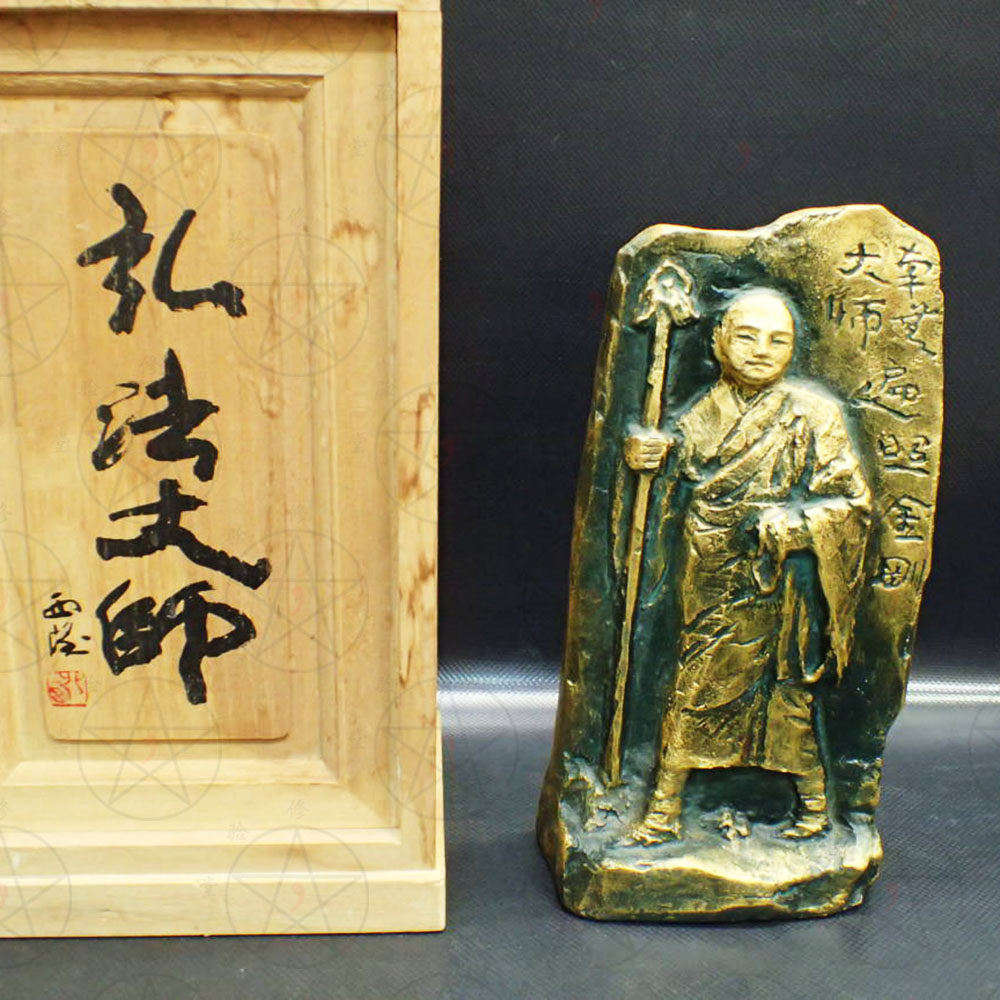 弘法大師
西望
南無
大師遍照金剛